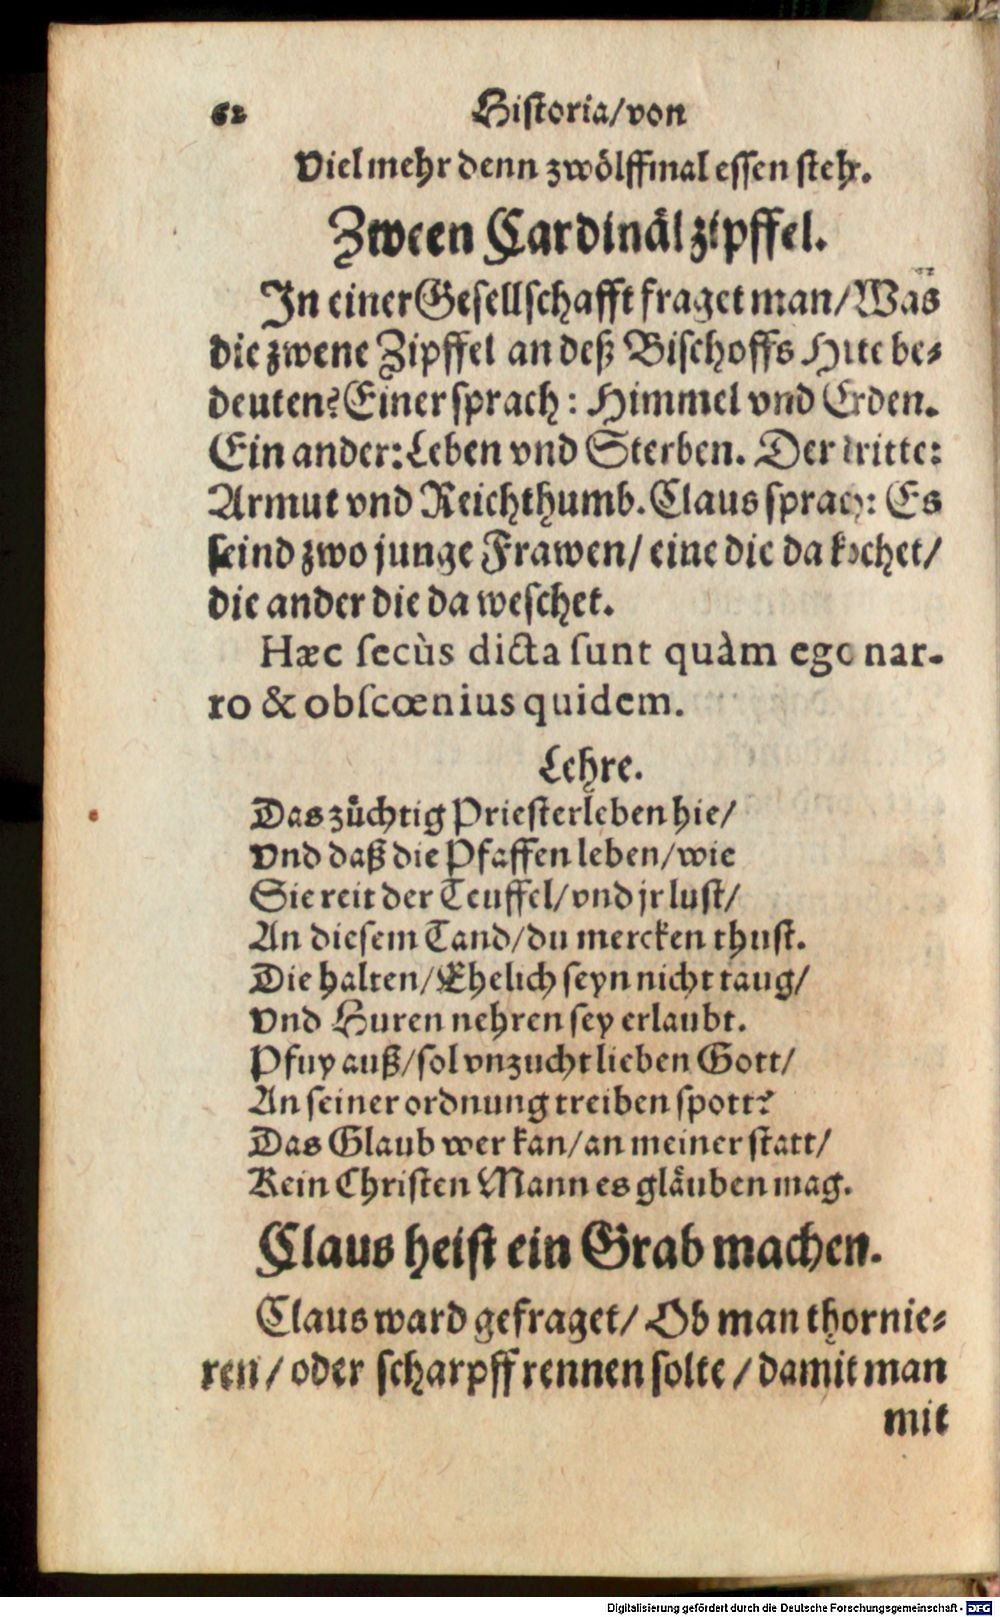 62 Historia/von
Viel mehr denn zwölffmal essen steht.
Zween Cardinäl zipffel.
In einer Gesellschafft fraget man/Was
die zwene Zipffel an deß Bischoffs Hüte be-
deuten? Einer sprach: Himmel vnd Erden.
Ein ander: Leben vnd Sterben. Der dritte:
Armut vnd Reichthumb. Claus sprach: Es
seind zwo junge Frawen/ eine die da kochet/
die ander die da weschet.
Hæc secùs dicta sunt quàm ego nar-
ro & obscœnius quidem.
Lehre.
Das züchtig Priesterleben hie/
Vnd daß die Pfaffen leben/wie
Sie reit der Teuffel/vnd jr lust/
An diesem Tand/du mercken thust.
Die halten/Ehelich seyn nicht taug/
Vnd Huren nehren sey erlaubt.
Pfuy auß/sol vnzucht lieben Gott/
An seiner ordnung treiben spott?
Das Glaub wer kan/an meiner statt/
Kein Christen Mann es gläuben mag.
Claus heist ein Grab machen.
Claus ward gefraget/ Ob man thornie-
ren/ oder scharpff rennen solte/ damit man
mit
Digitalisierung gefördert durch die Deutsche Forschungsgemeinschaft - DFG